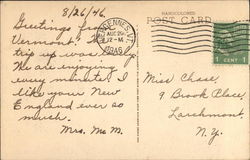 8/26/46
HANDCOLORED
POST CARD
Greetings from
Vermont! The
trip up was
We are enjoying
every minute. I
like your New
England ever so
much.
Mrs. Mc M.
VERGENNES, VT.
AUG 26
12-M
1946
1 CENT 1
Miss Chase,
9 Brook Place,
Larchmont,
N.Y.